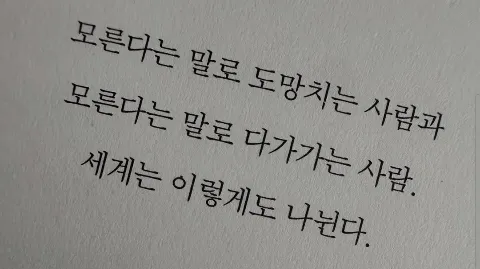 모른다는 말로 도망치는 사람과
모른다는 말로 다가가는 사람.
세계는 이렇게도 나뉜다.